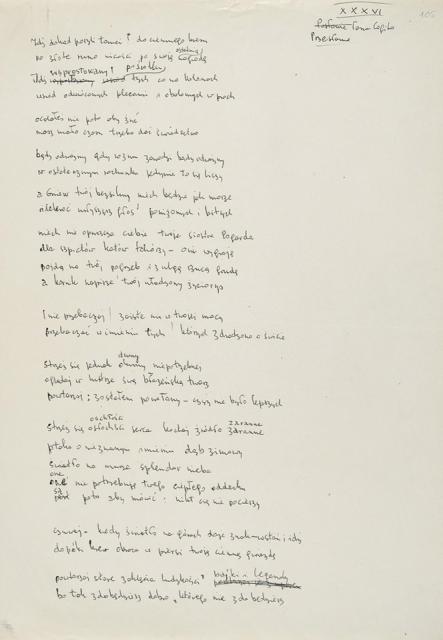 XXXVI
105
Posłanie Pana Cogito
Przesłanie
Idź dokąd poszli tamci do ciemnego kresu
po złote runo nicości po swoją ostatnią nagrodę
Idź wyprostowany pośród tych co na kolanach
wśród odwróconych plecami i obalonych w proch
ocalałeś nie po to aby żyć
masz mało czasu trzeba dać świadectwo
bądź odważny gdy rozum zawodzi bądź odważny
w ostatecznym rachunku jedynie to się liczy
a Gniew twój bezsilny niech będzie jak morze
ilekroć usłyszysz głos poniżonych i bitych
niech nie opuszcza ciebie twoja siostra Pogarda
dla szpiclów katów tchórzy – oni wygrają
pójdą na twój pogrzeb i z ulgą rzucą grudę
a kornik napisze twój uładzony życiorys
i nie przebaczaj zaiste nie w twojej mocy
przebaczać w imieniu tych których zdradzono o świcie
strzeż się jednak dumy niepotrzebnej
oglądaj w lustrze swą błazeńską twarz
powtarzaj: zostałem powołany – czyż nie było lepszych
strzeż się oschłości serca kochaj źródło zaranne
ptaka o nieznanym imieniu dąb zimowy
światło na murze splendor nieba
one nie potrzebują twego ciepłego oddechu
są po to aby mówić: nikt cię nie pocieszy
czuwaj – kiedy światło na górach daje znak – wstań i idź
dopóki krew obraca w piersi twoją ciemną gwiazdę
powtarzaj stare zaklęcia ludzkości bajki i legendy
bo tak zdobędziesz dobro którego nie zdobędziesz